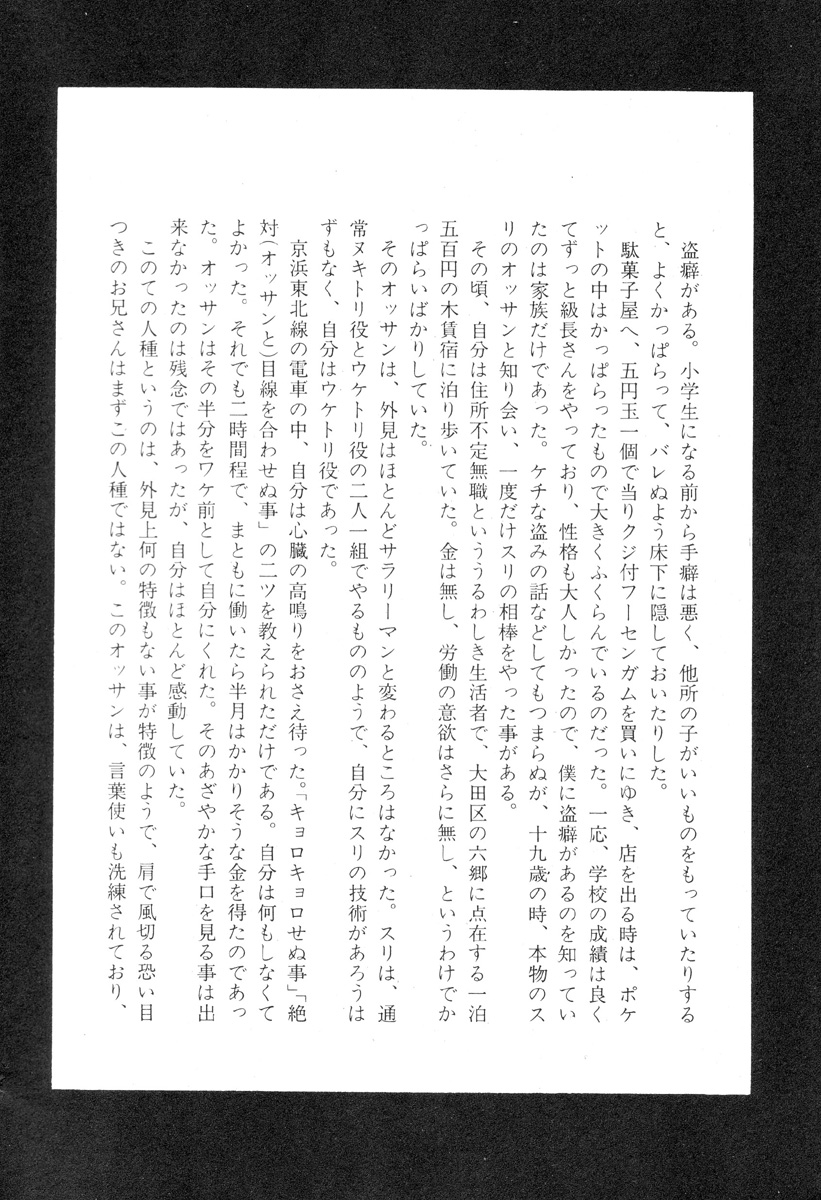 盗癖がある。小学生になる前から手癖は悪く、他所の子がいいものをもっていたりする
と、よくかっぱらって、バレぬよう床下に隠しておいたりした。
駄菓子屋へ、五円玉一個で当りクジ付フーセンガムを買いにゆき、店を出る時は、ポケ
ットの中はかっぱらったもので大きくふくらんでいるのだった。一応、学校の成績は良く
てずっと級長さんをやっており、性格も大人しかったので、僕に盗癖があるのを知ってい
たのは家族だけであった。ケチな盗みの話などしてもつまらぬが、十九歳の時、本物のス
リのオッサンと知り会い、一度だけスリの相棒をやった事がある。
その頃、自分は住所不定無職といううるわしき生活者で、大田区の六郷に点在する一泊
五百円の木賃宿に泊り歩いていた。金は無し、労働の意欲はさらに無し、というわけでか
っぱらいばかりしていた。
そのオッサンは、外見はほとんどサラリーマンと変わるところはなかった。スリは、通
常ヌキトリ役とウケトリ役の二人一組でやるもののようで、自分にスリの技術があろうは
ずもなく、自分はウケトリ役であった。
京浜東北線の電車の中、自分は心臓の高鳴りをおさえ待った。「キョロキョロせぬ事」「絶
対(オッサンと)目線を合わせぬ事」の二ツを教えられただけである。自分は何もしなくて
よかった。それでも二時間程で、まともに働いたら半月はかかりそうな金を得たのであっ
た。オッサンはその半分をワケ前として自分にくれた。そのあざやかな手口を見る事は出
来なかったのは残念ではあったが、自分はほとんど感動していた。
このての人種というのは、外見上何の特徴もない事が特徴のようで、肩で風切る恐い目
つきのお兄さんはまずこの人種ではない。このオッサンは、言葉使いも洗練されており、